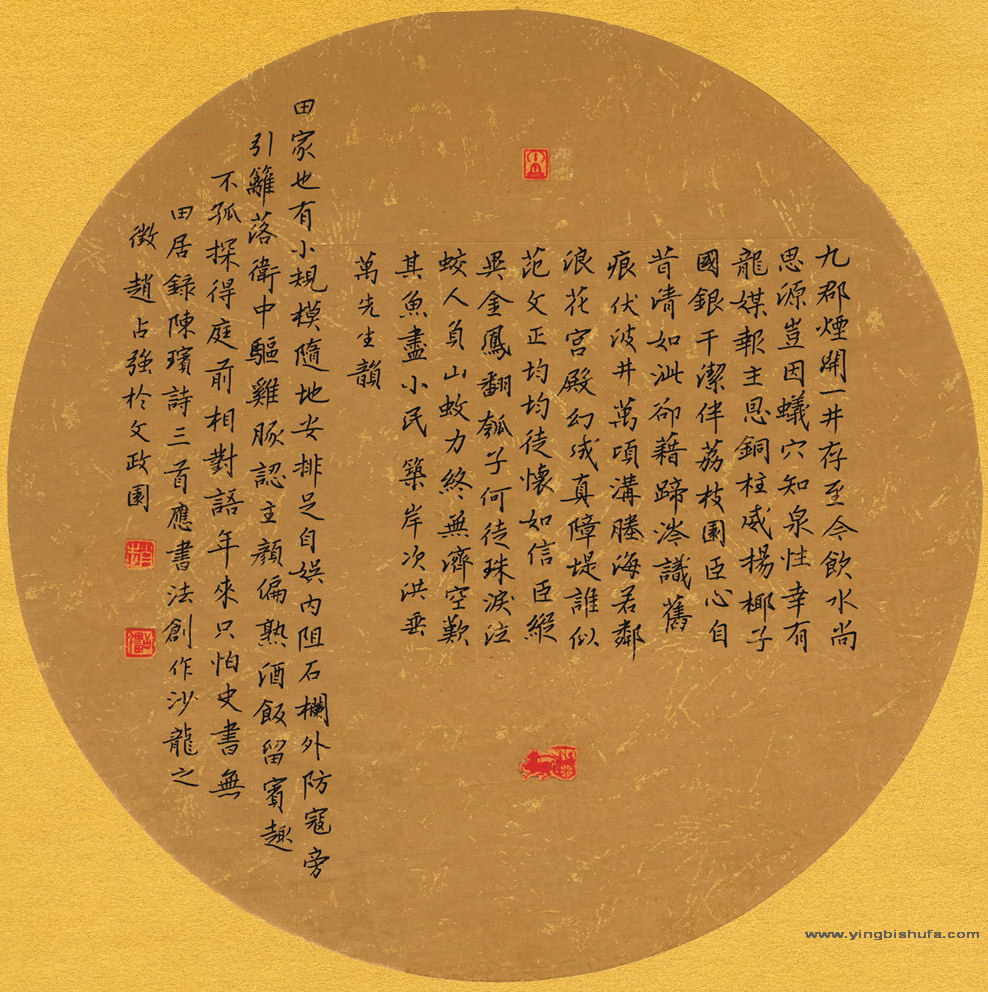 九郡煙開一井存至今飲水尚
思源豈因蟻穴知泉性幸有
龍媒報主恩銅柱威揚椰子
國銀干潔伴荔枝園臣心自
昔清如泚卻藉蹄涔識舊
痕伏波井萬頃溝塍海若鄰
浪花宮殿幻成真障堤誰似
范文正均均徒懷如信臣縱
異金鳳翻瓠子何徒珠淚泣
蛟人負山蚊力終無濟空歎
其魚盡小民築岸次洪垂
萬先生韻
田家也有小規模隨地安排足自娱内阻石欄外防寇旁
引籬落衛中驅雞豚認主顏偏熟酒飯留賓趣
不孤探得庭前相對語年來只怕史書無
田居録陳璸詩三首應書法創作沙龍之
徵趙占強於文政園
www.yingbishufa.com